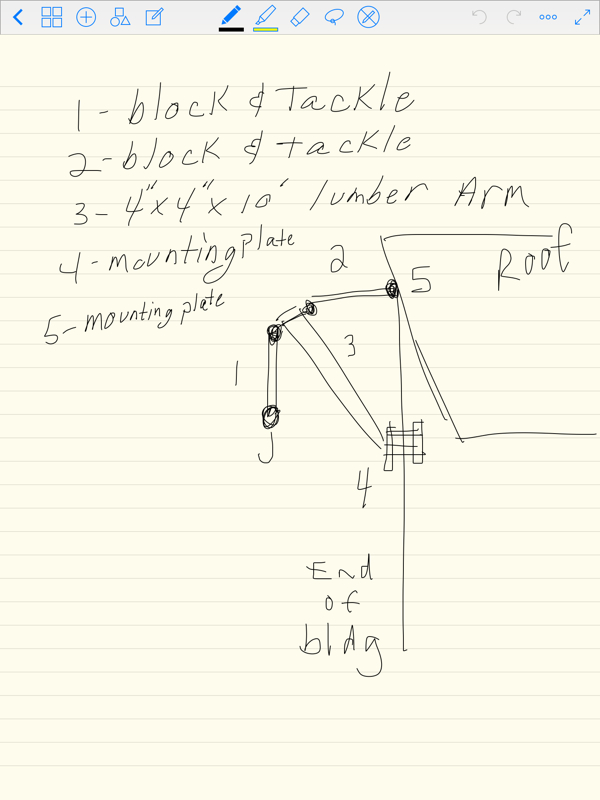 1- block & Tackle
2- block & tackle
3- 4"x4"x10' lumber Arm
4- mounting plate
5- mounting plate
2
Roof
5
3
1
4
End
of
bldg